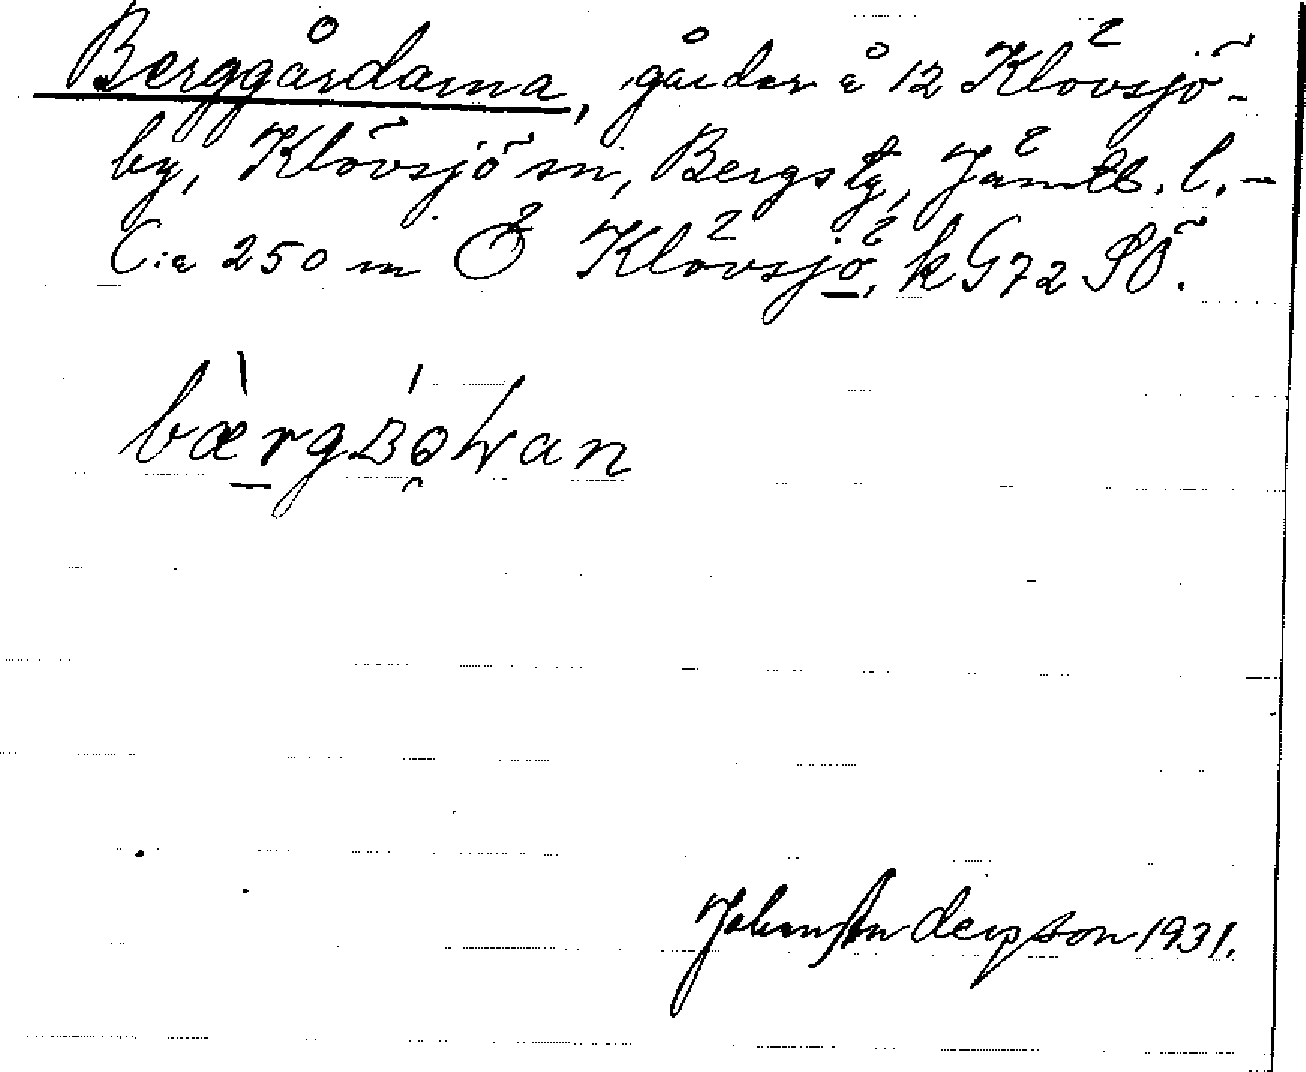 Berggårdarna, gårdar å 12 Klövsjö-
by, Klövsjö sn, Bergs tg, Jämtl. l. -
C:a 250 m Ö Klövsjö, k G72 SÖ.
John Anderson 1931.